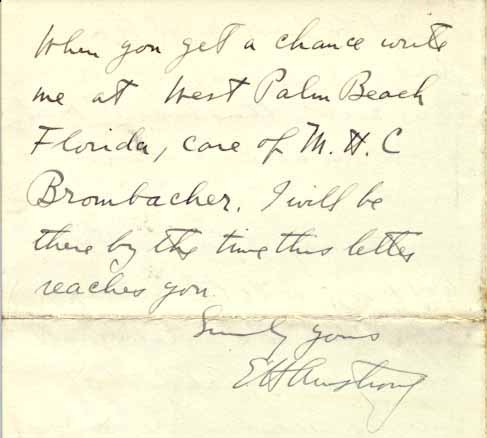 When you get a chance write
me at West Palm Beach
Florida, care of M. H. C
Brombacher. I will be
there by the time this letter
reaches you.
Sincerely yours
E H Armstrong